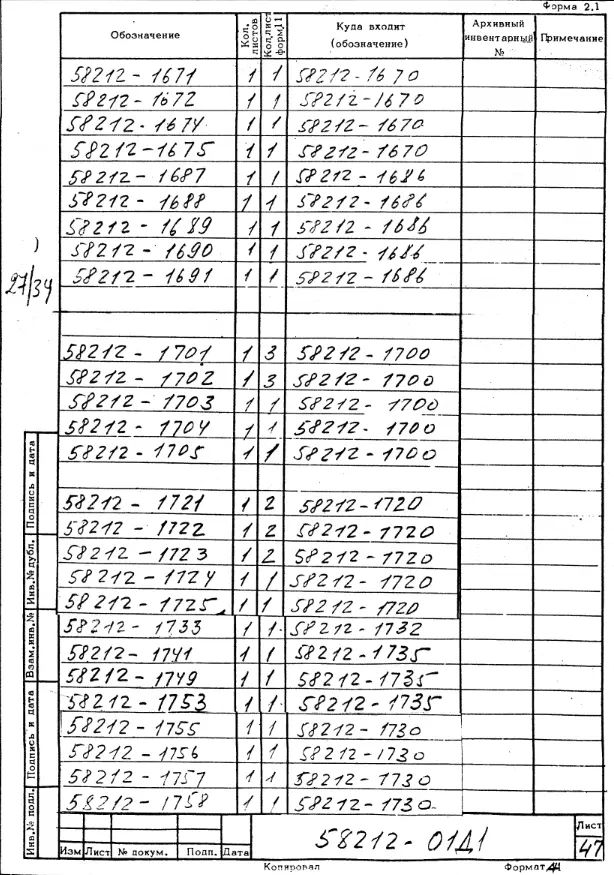 Форма 2.1
Обозначение Кол. листов Кол. лист форм.11 Куда входит (обозначение) Архивный инвентарный № Примечание
58212-1671 1 1 58212-1670
58212-1672 1 1 58212-1670
58212-1674 1 1 58212-1670
58212-1675 1 1 58212-1670
58212-1687 1 1 58212-1686
58212-1688 1 1 58212-1686
58212-1689 1 1 58212-1686
58212-1690 1 1 58212-1686
58212-1691 1 1 58212-1686
27/34
58212-1701 1 3 58212-1700
58212-1702 1 3 58212-1700
58212-1703 1 1 58212-1700
58212-1704 1 1 58212-1700
58212-1705 1 1 58212-1700
58212-1721 1 2 58212-1720
58212-1722 1 2 58212-1720
58212-1723 1 2 58212-1720
58212-1724 1 1 58212-1720
58212-1725 1 1 58212-1720
58212-1733 1 1 58212-1732
58212-1741 1 1 58212-1735
58212-1749 1 1 58212-1735
58212-1753 1 1 58212-1735
58212-1755 1 1 58212-1730
58212-1756 1 1 58212-1730
58212-1757 1 1 58212-1730
58212-1758 1 1 58212-1730
Подпись и дата
Инв.№ дубл.
Взам.инв.№
Подпись и дата
Инв.№ подл.
Изм Лист № докум. Подп. Дата
58212-01Д1
Лист
47
Копировал Формат А4